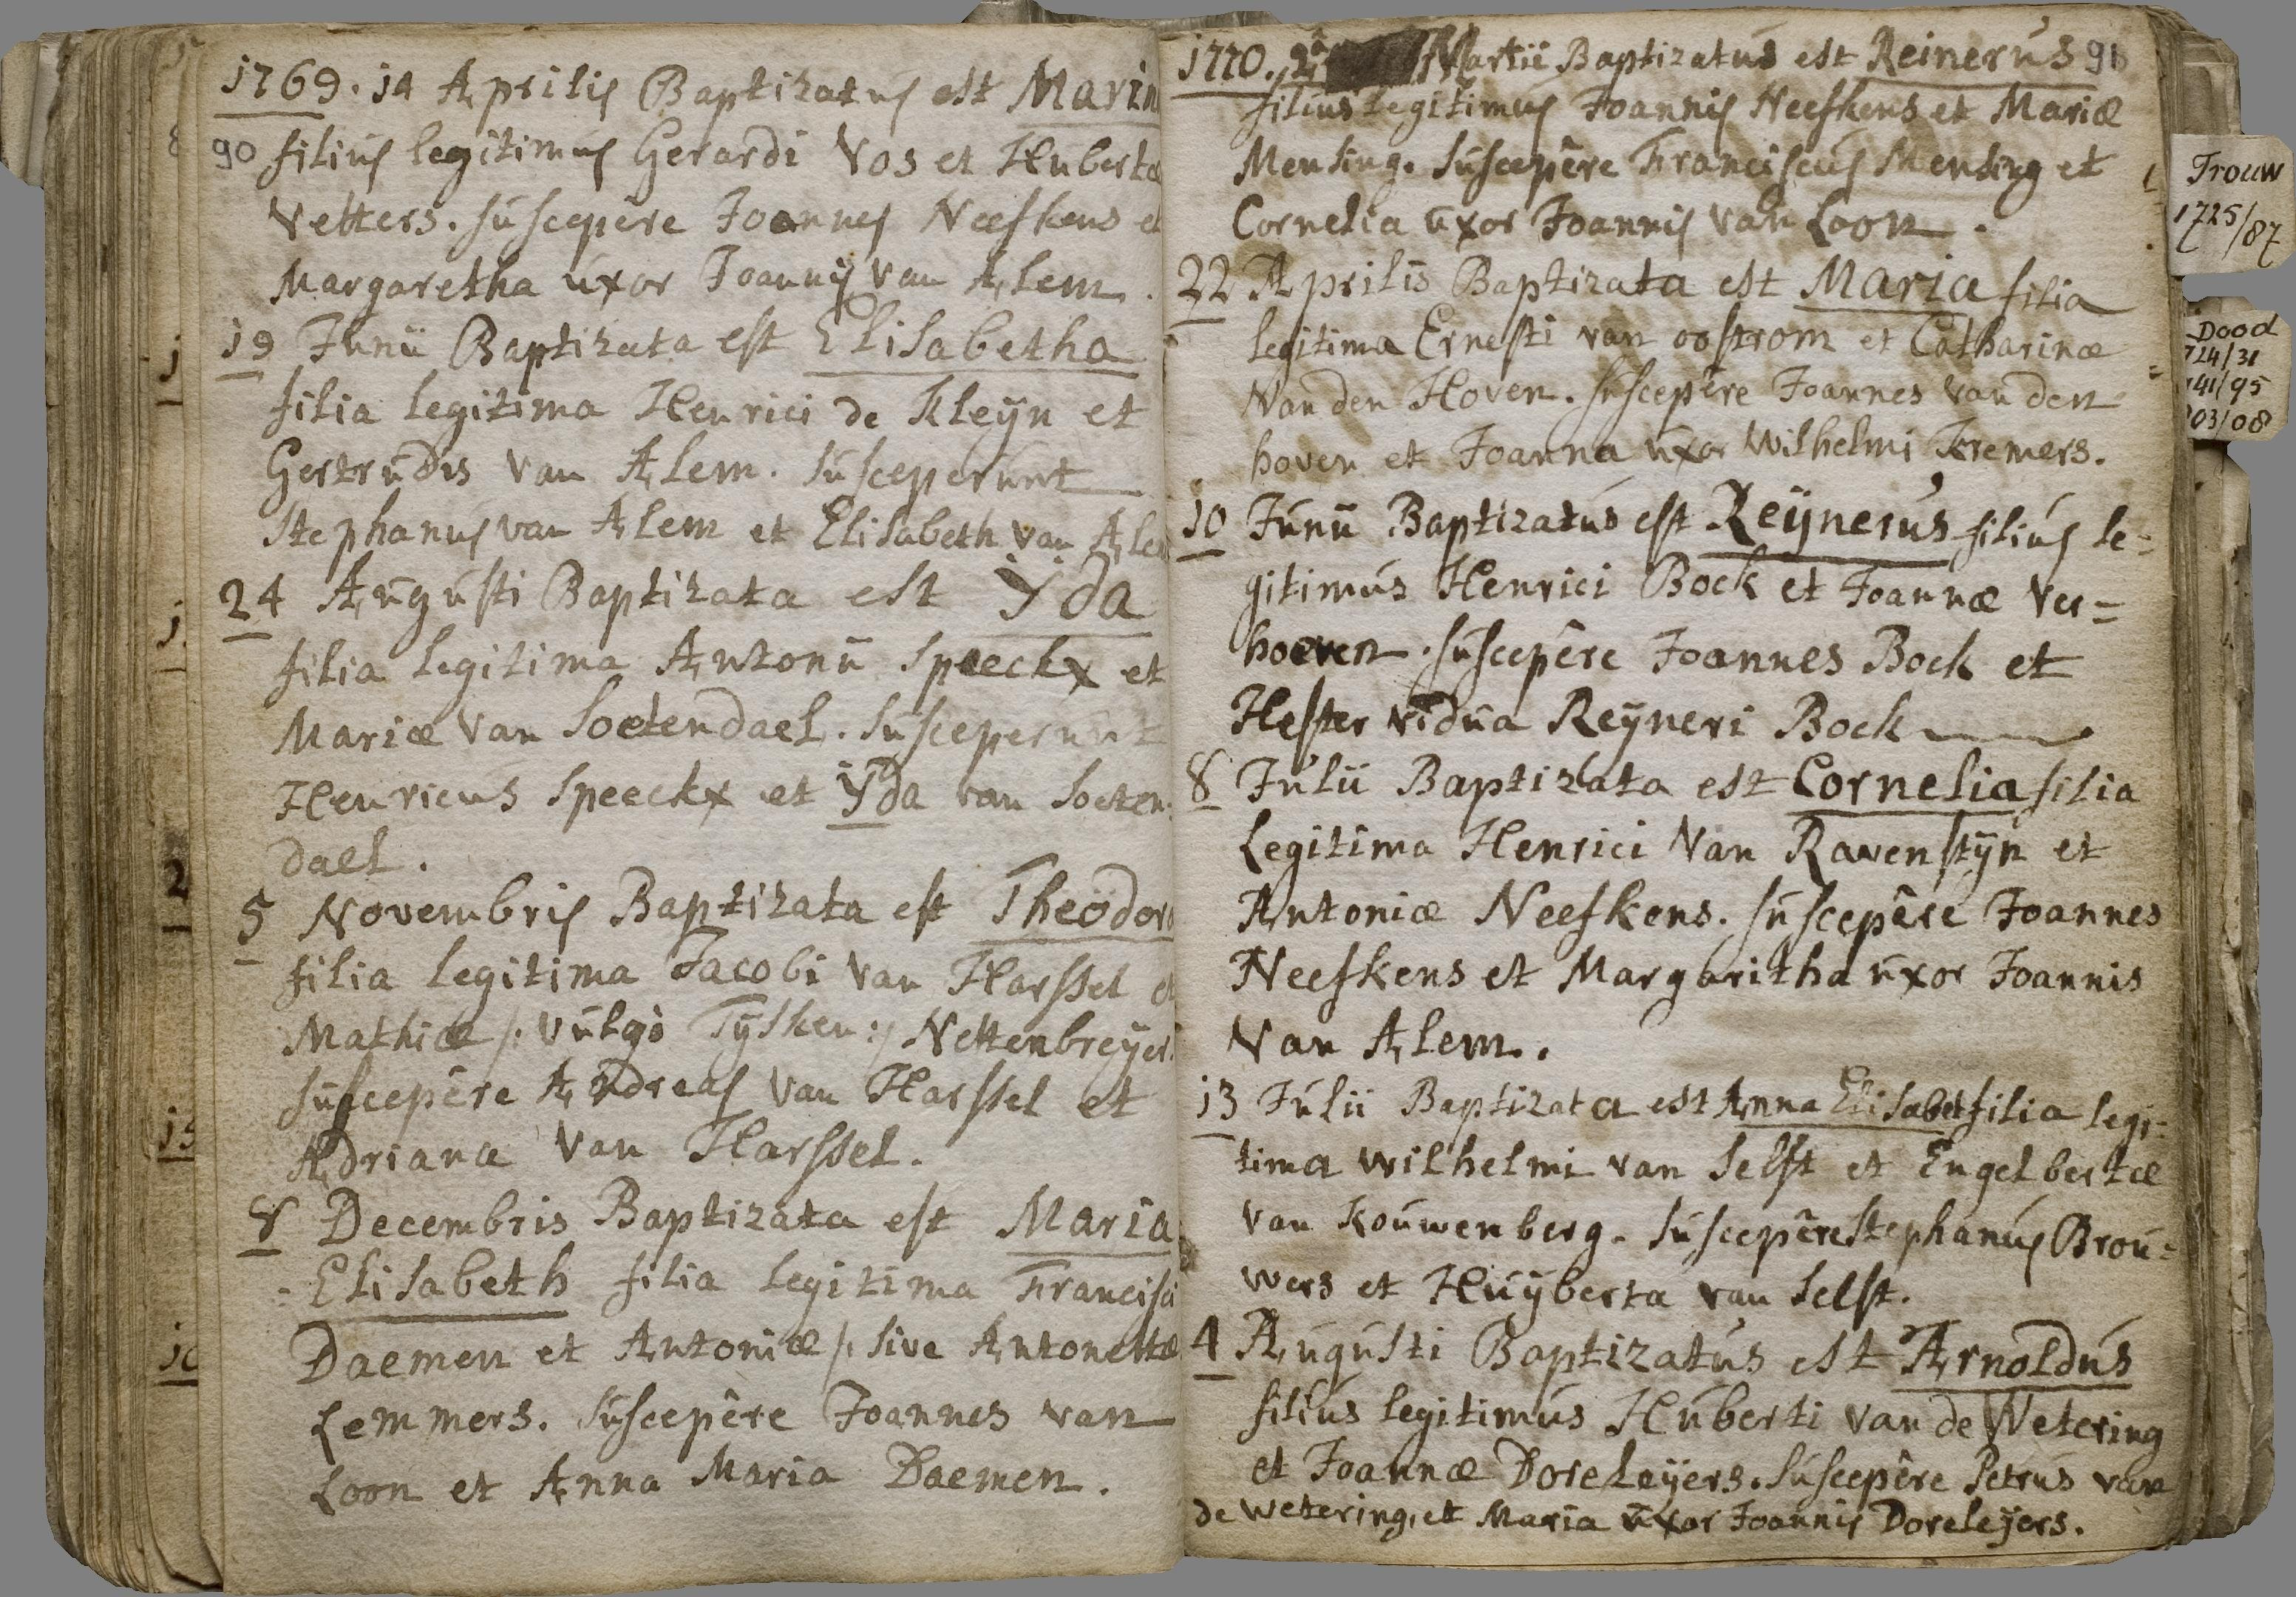 1769. 14 Aprilis Baptizatus est Marin
90 filius legitimus Gerardi Vos et Hubertæ
Vetters. suscepêre Joannes Neefkens et
Margaretha uxor Joannis van Alem.
19 Junii Baptizata est Elisabetha
filia legitima Henrici de Kleijn et
Gertrudis van Alem. susceperunt
Stephanus van Alem et Elisabeth van Alem
24 Augusti Baptizata est Ÿda
filia legitima Antonii Speeckx et
Mariæ van Soetendael. susceperunt
Henricus Speeckx et Ÿda van Soeten-
dael.
5 Novembris Baptizata est Theodora
filia legitima Jacobi van Harssel et
Mathiæ /: vulgò Tÿsken :/ Nettenbreÿers
suscepêre Andreas van Harssel et
Adriana van Harssel.
8 Decembris Baptizata est Maria
Elisabeth filia legitima Francisci
Daemen et Antoniæ /: sive Antonettæ
Lemmers. suscepêre Joannes van
Loon et Anna Maria Daemen.
1770. 2â Martii Baptizatus est Reinerus 91
filius legitimus Joannis Neefkens et Mariæ
Mensing. suscepêre Franciscus Mensing et
Cornelia uxor Joannis van Loon.
22 Aprilis Baptizata est Maria filia
legitima Ernesti van oostrom et Catharinæ
Van den Hoven. suscepêre Joannes van den
hoven et Joanna uxor Wilhelmi Kremers.
10 Junii Baptizatus est Reÿnerus filius le=
gitimus Henrici Bock et Joannæ Ver=
hoeven. suscepêre Joannes Bock et
Hester vidua Reÿneri Bock
8 Julii Baptizata est Cornelia filia
Legitima Henrici Van Ravenstÿn et
Antoniæ Neefkens. suscepêre Joannes
Neefkens et Margaritha uxor Joannis
Van Alem.
13 Julii Baptizata est Anna Elisabet filia legi-
tima wilhelmi van Selst et Engelbertæ
van Kouwenberg. suscepêre Stephanus Brou=
wers et Huÿberta van Selst.
4 Augusti Baptizatus est Arnoldus
filius legitimus Huberti van de Wetering
et Joannæ Doreleÿers. suscepêre Petrus van
de wetering, et Maria uxor Joannis Doreleÿers.
Trouw
1725/87
Dood
724/31
741/95
03/08